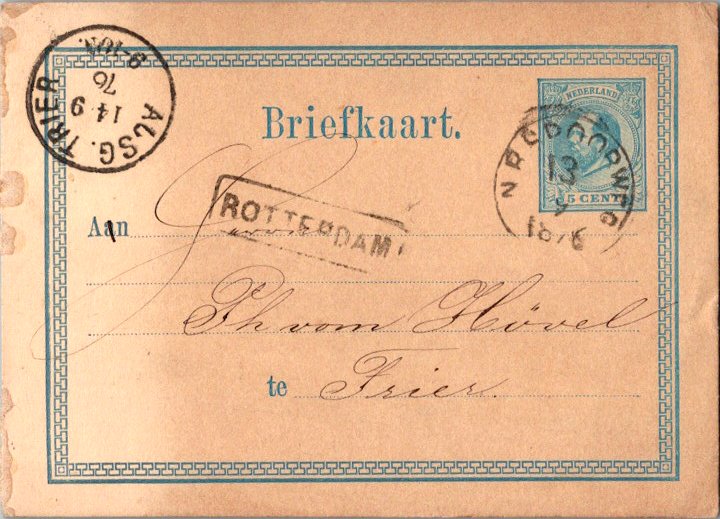 AUSG. TRIER
14 9
76
9-10N.
NEDERLAND
5 CENT
N.R.SPOORWEG
13
9
1876
Briefkaart.
ROTTERDAM
Aan
Ph vom Hövel
te Trier.